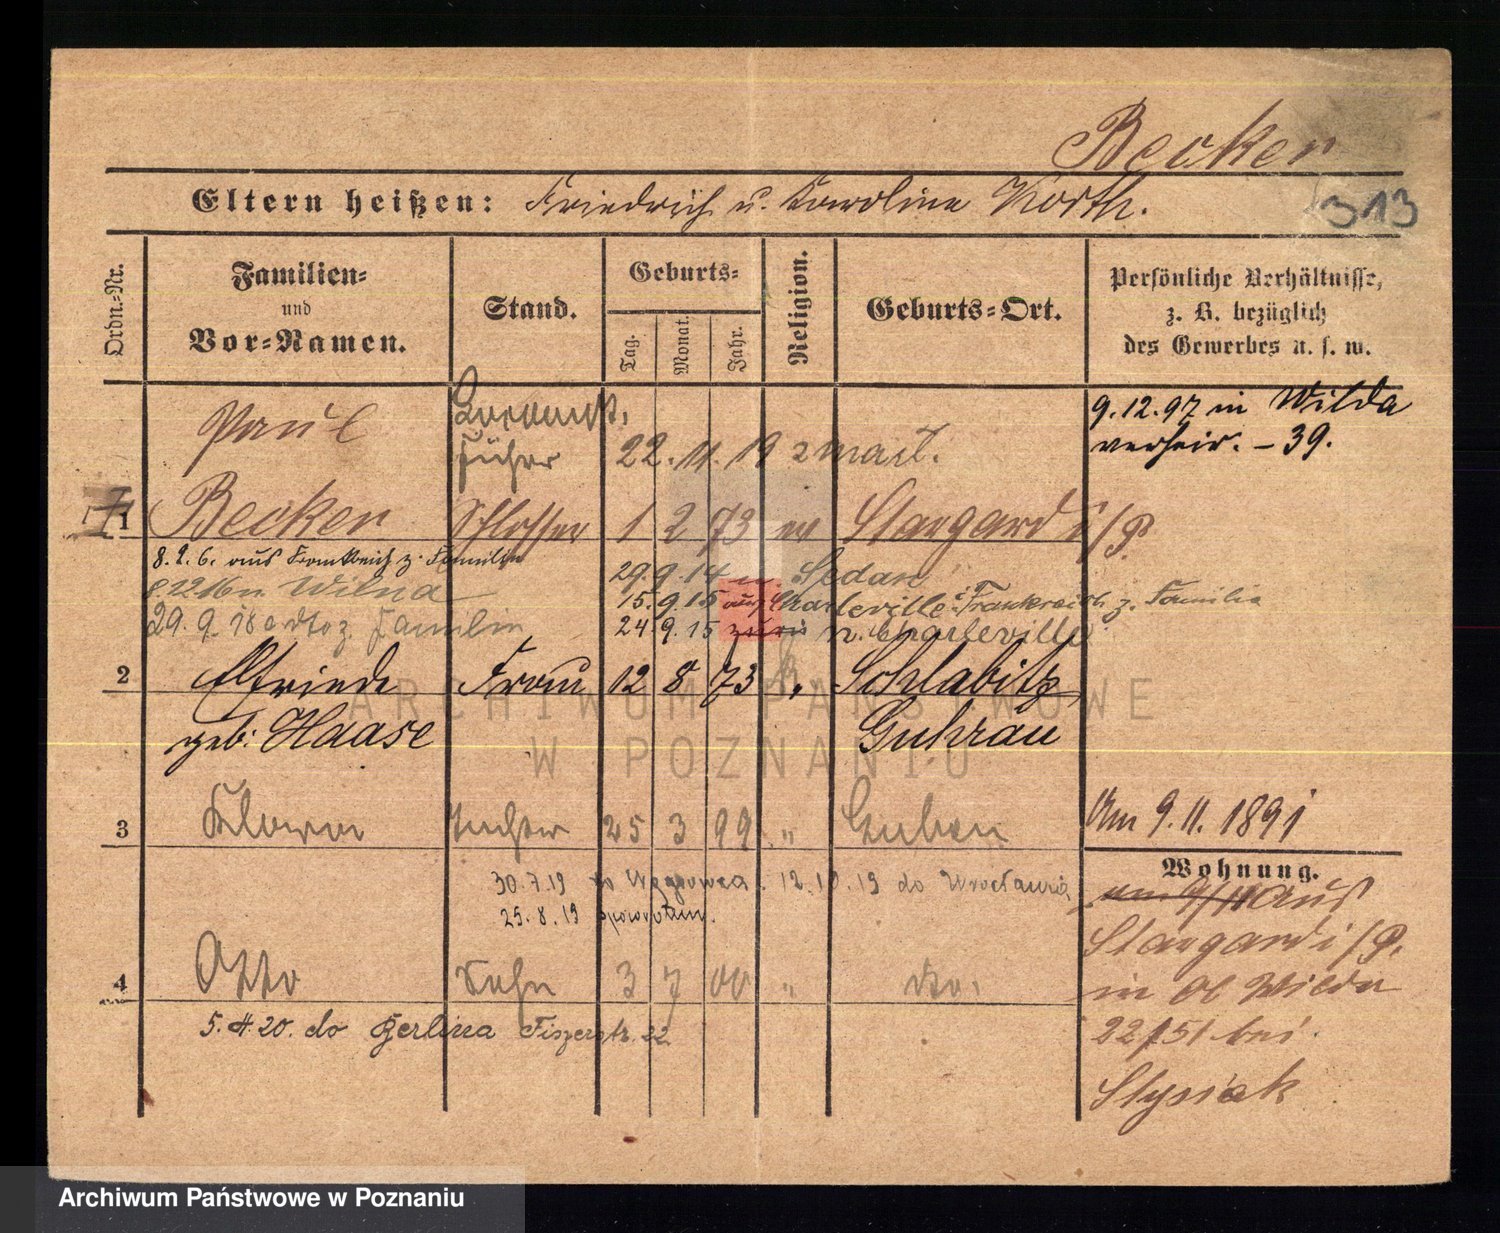 Becker
Eltern heißen: Friedrich u. Karoline Korth.
313
Ordn.-Nr.
Familien-
und
Vor-Namen.
Stand.
Geburts-
Tag.
Monat.
Jahr.
Religion.
Geburts-Ort.
Persönliche Verhältnisse,
z. B. bezüglich
des Gewerbes u. s. w.
Paul
führer
22. 11. 19 zmarł.
9.12.97 in Wilda
verheir. – 39.
1
Becker
Schlosser
1 2 73 ev
Stargard i/P.
8. 2. 6. aus Frankreich z. Familie
29.9.14 n. Sedan
Wilna
15.9.15 aus Charleville i. Frankreich z. Familie
29. 9. 18 z. Familie
24.9.15 n. Charleville
2
Elfriede
Frau
12 8 73
Schlabitz
geb: Haase
Guhrau
3
Klara
Tochter
25 3 99 "
Guben
Am 9. 11. 1891
Wohnung.
30.7.19 do Wągrowca. 12.10.19 do Wrocławia
25. 8. 19 spowrotem.
aus
Stargard i/P.
in Ob Wilda
22/51 bei
Stysiak
4
Otto
Sohn
3 7 00 "
do.
5. 4. 20. do Berlina Fiszerstr. 22
ARCHIWUM PAŃSTWOWE
W POZNANIU
Archiwum Państwowe w Poznaniu